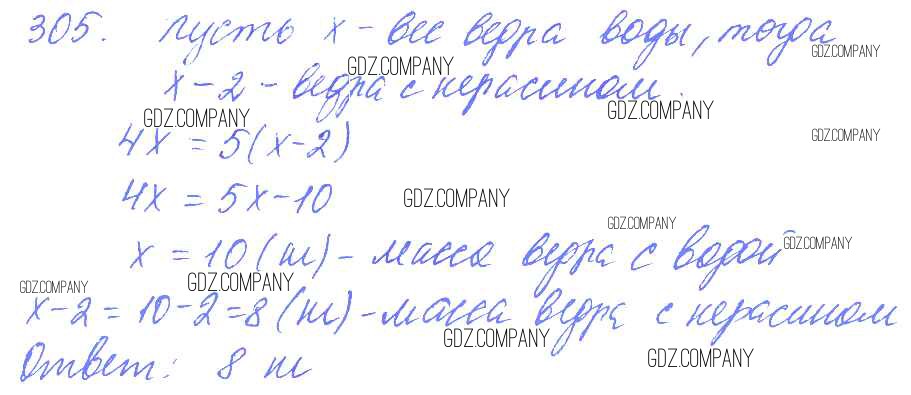 305. Пусть x - вес ведра воды, тогда
GDZ.COMPANY
GDZ.COMPANY
x - 2 - ведра с керасином.
GDZ.COMPANY
GDZ.COMPANY
4x = 5(x-2)
GDZ.COMPANY
4x = 5x - 10
GDZ.COMPANY
GDZ.COMPANY
x = 10 (кг) - масса ведра с водой
GDZ.COMPANY
GDZ.COMPANY
GDZ.COMPANY
x-2 = 10-2=8 (кг) - масса ведра с керасином
GDZ.COMPANY
Ответ: 8 кг
GDZ.COMPANY